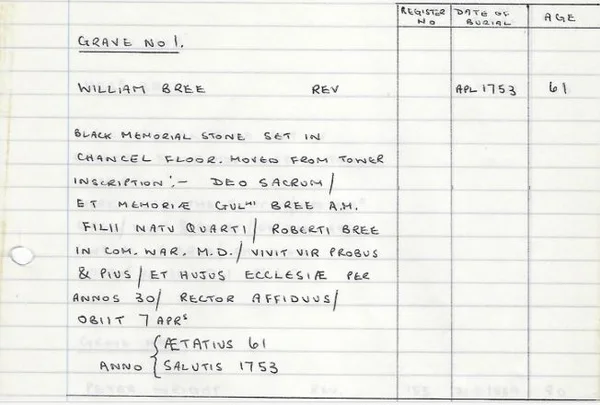 REGISTER NO DATE OF BURIAL AGE
GRAVE NO 1.
WILLIAM BREE REV APL 1753 61
BLACK MEMORIAL STONE SET IN
CHANCEL FLOOR. MOVED FROM TOWER
INSCRIPTION:- DEO SACRUM/
ET MEMORIÆ GULMI BREE A.M.
FILII NATU QUARTI/ ROBERTI BREE
IN COM. WAR. M.D./ VIVIT VIR PROBUS
& PIUS/ ET HUJUS ECCLESIÆ PER
ANNOS 30/ RECTOR AFFIDVUS/
OBIIT 7 APRS
ANNO { ÆTATIUS 61
SALUTIS 1753